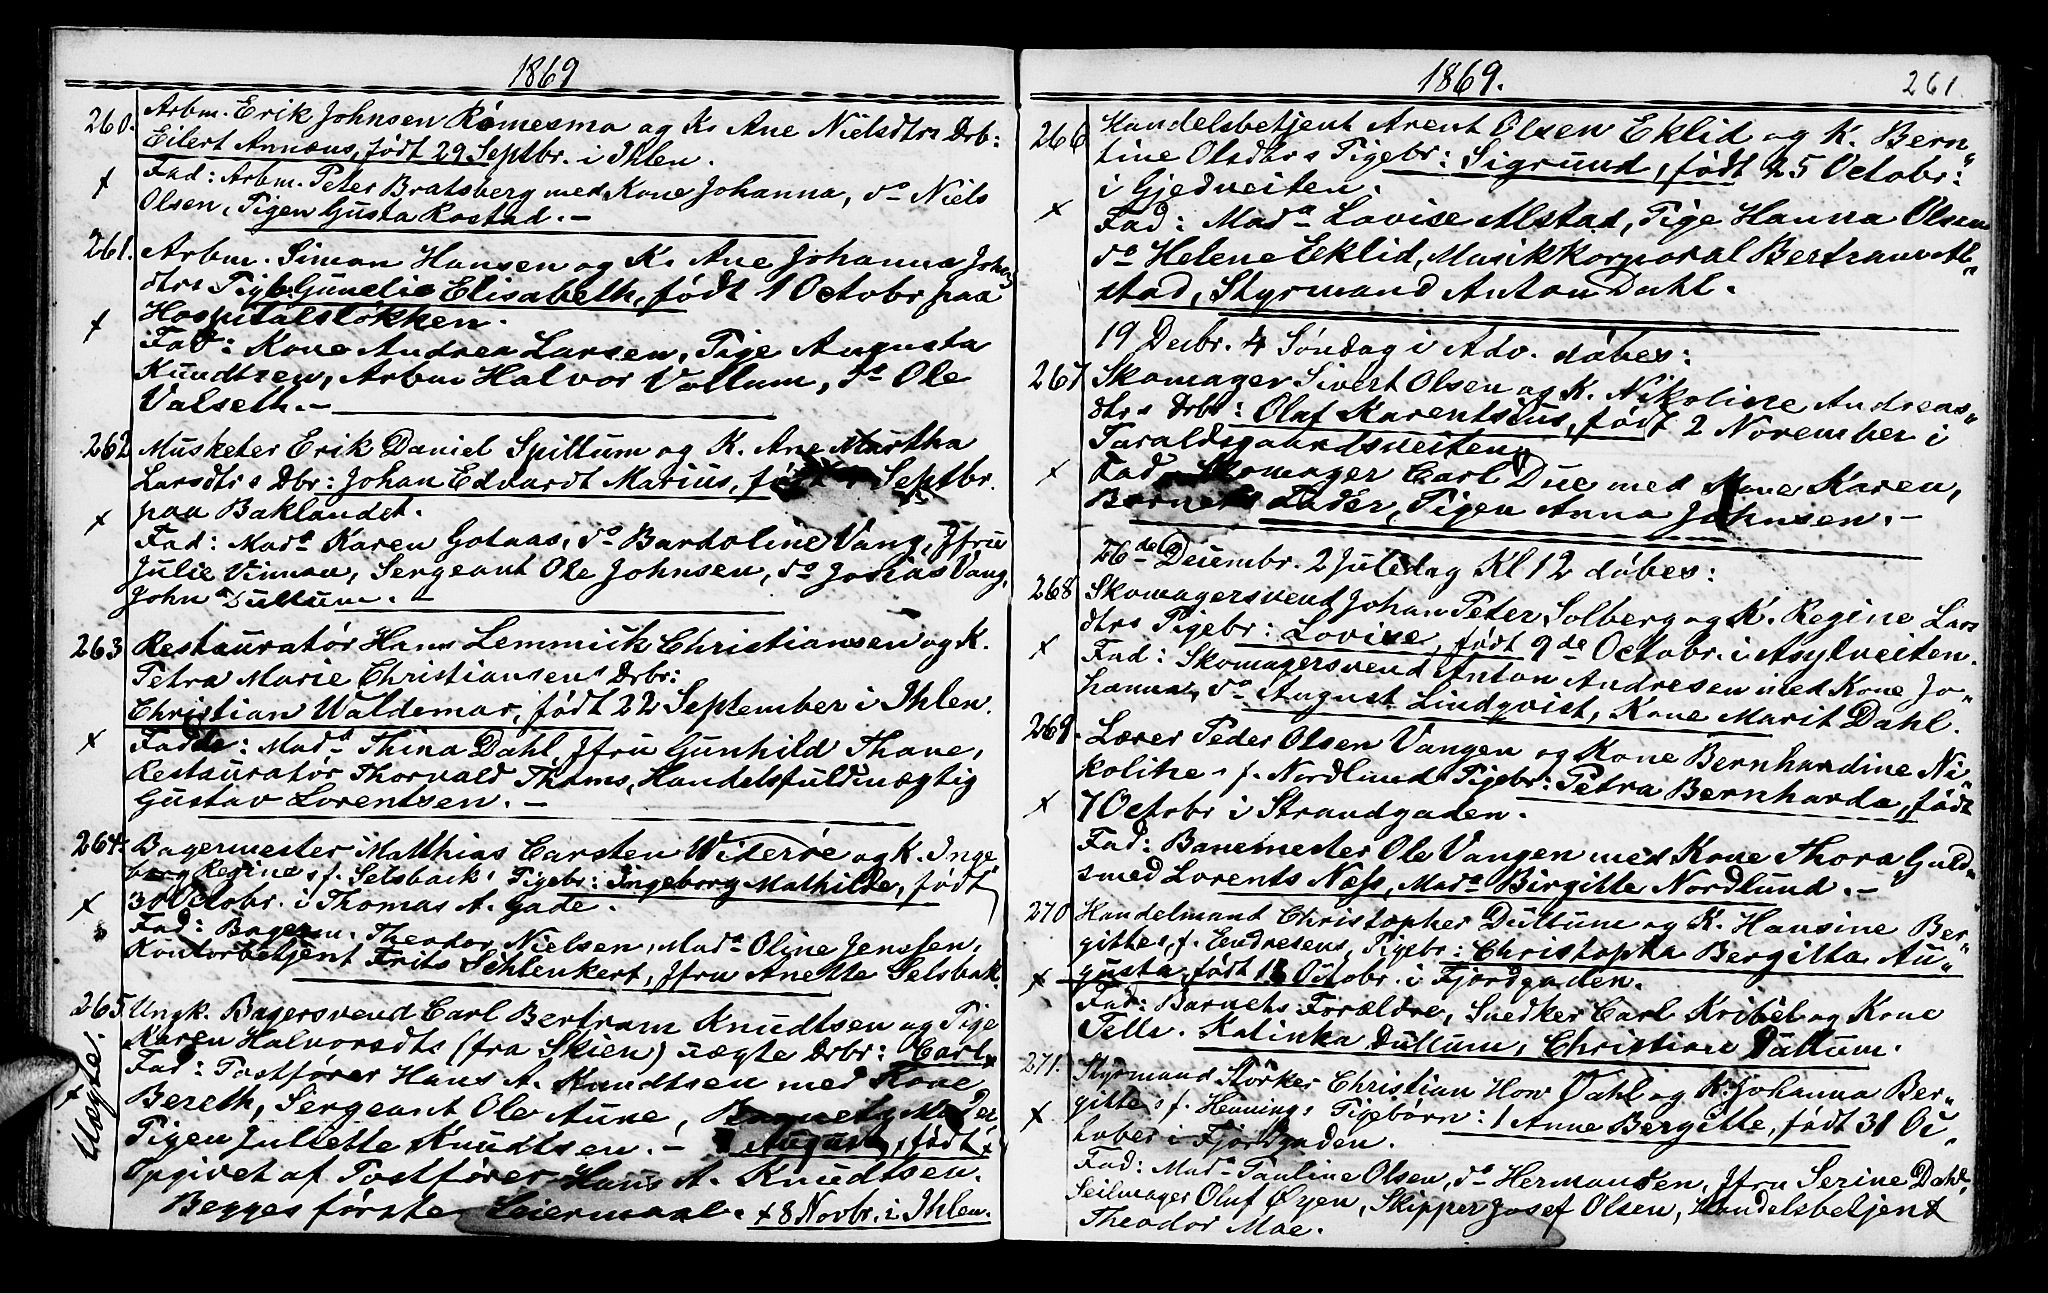 1869
260. Arbm. Erik Johnsen Rømesmo og K. Ane Nielsdtrs Drb:
Eilert Annæus, født 29 Septbr. i Ihlen.
+ Fad: Arbm. Peter Bratsberg med Kone Johanna, do Niels
Olsen, Pigen Gusta Rostad. —
261. Arbm. Simon Hansen og K. Ane Johanna Johns
dtrs Pigb. Gunelie Elisabeth, født 1 Octobr paa
+ Hospitalsløkken.
Fad: Kone Andrea Larsen, Pige Augusta
Knudtsen, Arbm Halvor Vollum, do Ole
Valseth. —
262 Musketer Erik Daniel Spillum og K. Ane Martha
Larsdtrs Dbr: Johan Edvardt Marius, født Septbr.
+ paa Baklandet.
Fad: Mada Karen Golaas, do Bardoline Vang, Jfru
Julie Vinnan, Sergeant Ole Johnsen, do Josias Vang,
John Dullum. —
263 Restauratør Hans Lemmick Christiansen og K.
Petra Marie Christiansens Drbr:
Christian Waldemar, født 22 September i Ihlen.
+ Fadde: Mada Thina Dahl, Jfru Gunhild Thane,
Restauratør Thorvald Thams, Handelsfuldmægtig
Gustav Lorentsen. —
264. Bagermester Matthias Carsten Widerøe og K. Inge
borg Regine f. Selsbacks Pigebr: Ingeborg Mathilde, født
+ 30 Octobr. i Thomas A. Gade.
Fad: Bagerm. Theodor Nielsen, Mada Oline Jenssen,
Kontorbetjent Frits Schlenkert, Jfru Anette Selsbak.
265. Ungk. Bagersvend Carl Bertram Knudtsen og Pige
Karen Halvorsdtr (fra Skien) uægte Drbr: Carl
Uægte.
+ Fad: Postfører Hans A. Knudtsen med Kone
Bereth, Sergeant Ole Aune,
Pigen Juliette Knudtsen. — August, født +
Opgivet af Postfører Hans A. Knudtsen.
Begges første Leiermaal. + 8 Novbr. i Ihlen.
1869. 261.
266 Handelsbetjent Arent Olsen Eklid og K. Bern"
tine Olsdtrs Pigebr: Sigrund, født 25 Octobr:
i Gjedveiten.
+ Fad: Mada Lovise Alstad, Pige Hanna Olsen
do Helene Eklid, Musikkorporal Bertram Al"
stad, Styrmand Anton Dahl.
19 Decbr. 4 Søndag i Adv. døbes:
267 Skomager Sivert Olsen og K. Nikoline Andreas"
dtrs Drbr: Olaf Karentsius, født 2 November i
Taraldsgaardsveiten
+ Fad. Skomager Carl Due med Kone Karen,
Barnets Fader, Pigen Anna Johnsen. —
26de Decembr. 2 Juledag Kl 12 døbes:
268 Skomagersvend Johan Peter Solberg og K. Regine Lars
dtrs Pigebr: Lovise, født 9de Octobr. i Asylveiten.
+ Fad: Skomagersvend Anton Andresen med Kone Jo"
hanna, do August Lindqvist, Kone Marit Dahl.
269. Lærer Peder Olsen Vangen og Kone Bernhardine Ni"
koline f. Nordlund Pigebr: Petra Bernharda, født
+ 7 Octobr i Strandgaden.
Fad: Banemester Ole Vangen med Kone Thora, Guld"
smed Lorents Næss, Mada Birgitte Nordlund. —
270 Handelmand Christopher Dullum og K. Hansine Ber"
gittes f. Eendresens Pigebr: Christopha Bergitta Au"
+ gusta, født 18 Octobr. i Fjordgaden.
Fad: Barnets Forældre, Snedker Carl Kribel og Kone
Pelle. Kalinka Dullum, Christian Dullum.
271. Styrmand Størker Christian How Dahl og K. Johanna Ber"
gittes f. Hennings Pigebarn: 1 Anne Bergitte, født 31 Oc"
+ tober i Fjordgaden.
Fad: Mada Pauline Olsen, do Hermansen, Jfru Serine Dahl,
Seilmager Oluf Øyen, Skipper Josef Olsen, Handelsbetjent
Theodor Moe.